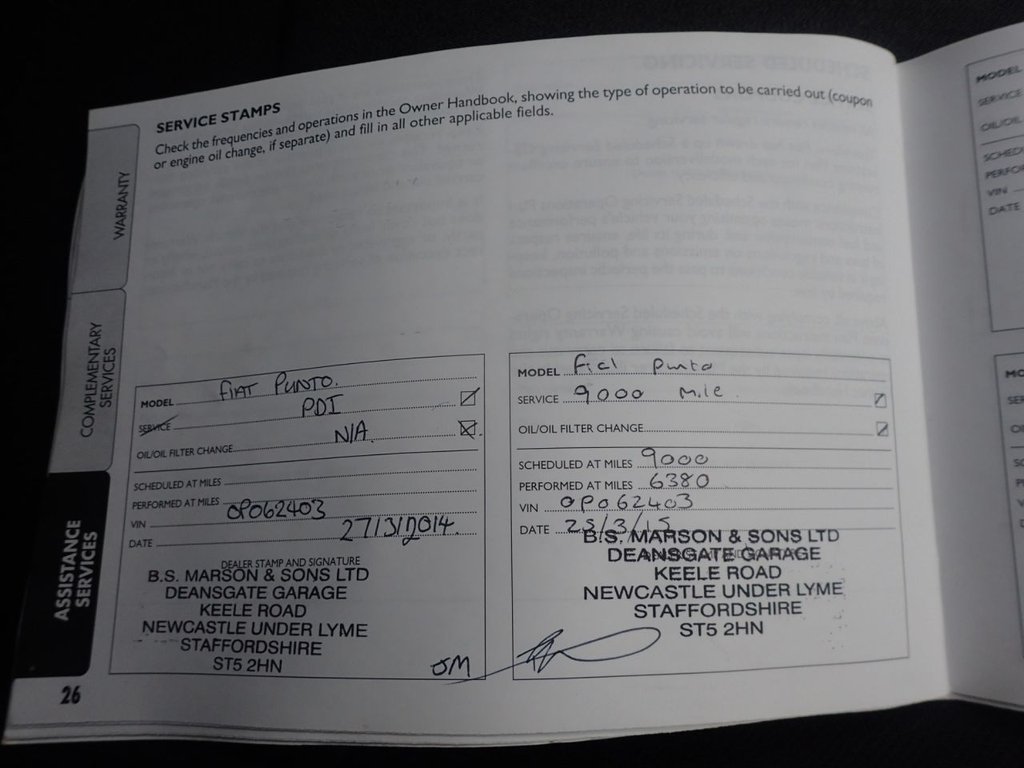 SERVICE STAMPS
Check the frequencies and operations in the Owner Handbook, showing the type of operation to be carried out (coupon
or engine oil change, if separate) and fill in all other applicable fields.
WARRANTY
COMPLEMENTARY
SERVICES
ASSISTANCE
SERVICES
26
MODEL FIAT PUNTO.
SERVICE PDI
OIL/OIL FILTER CHANGE N/A
SCHEDULED AT MILES
PERFORMED AT MILES
VIN 0P062403
DATE 27/3/2014.
DEALER STAMP AND SIGNATURE
B.S. MARSON & SONS LTD
DEANSGATE GARAGE
KEELE ROAD
NEWCASTLE UNDER LYME
STAFFORDSHIRE
ST5 2HN
JM
MODEL Fiat Punto
SERVICE 9000 Mile
OIL/OIL FILTER CHANGE
SCHEDULED AT MILES 9000
PERFORMED AT MILES 6380
VIN 0P062403
DATE 25/3/15
B.S. MARSON & SONS LTD
DEANSGATE GARAGE
KEELE ROAD
NEWCASTLE UNDER LYME
STAFFORDSHIRE
ST5 2HN
MODEL
SERVICE
OIL/OIL
SCHED
PERFOR
VIN
DATE
MO
SER